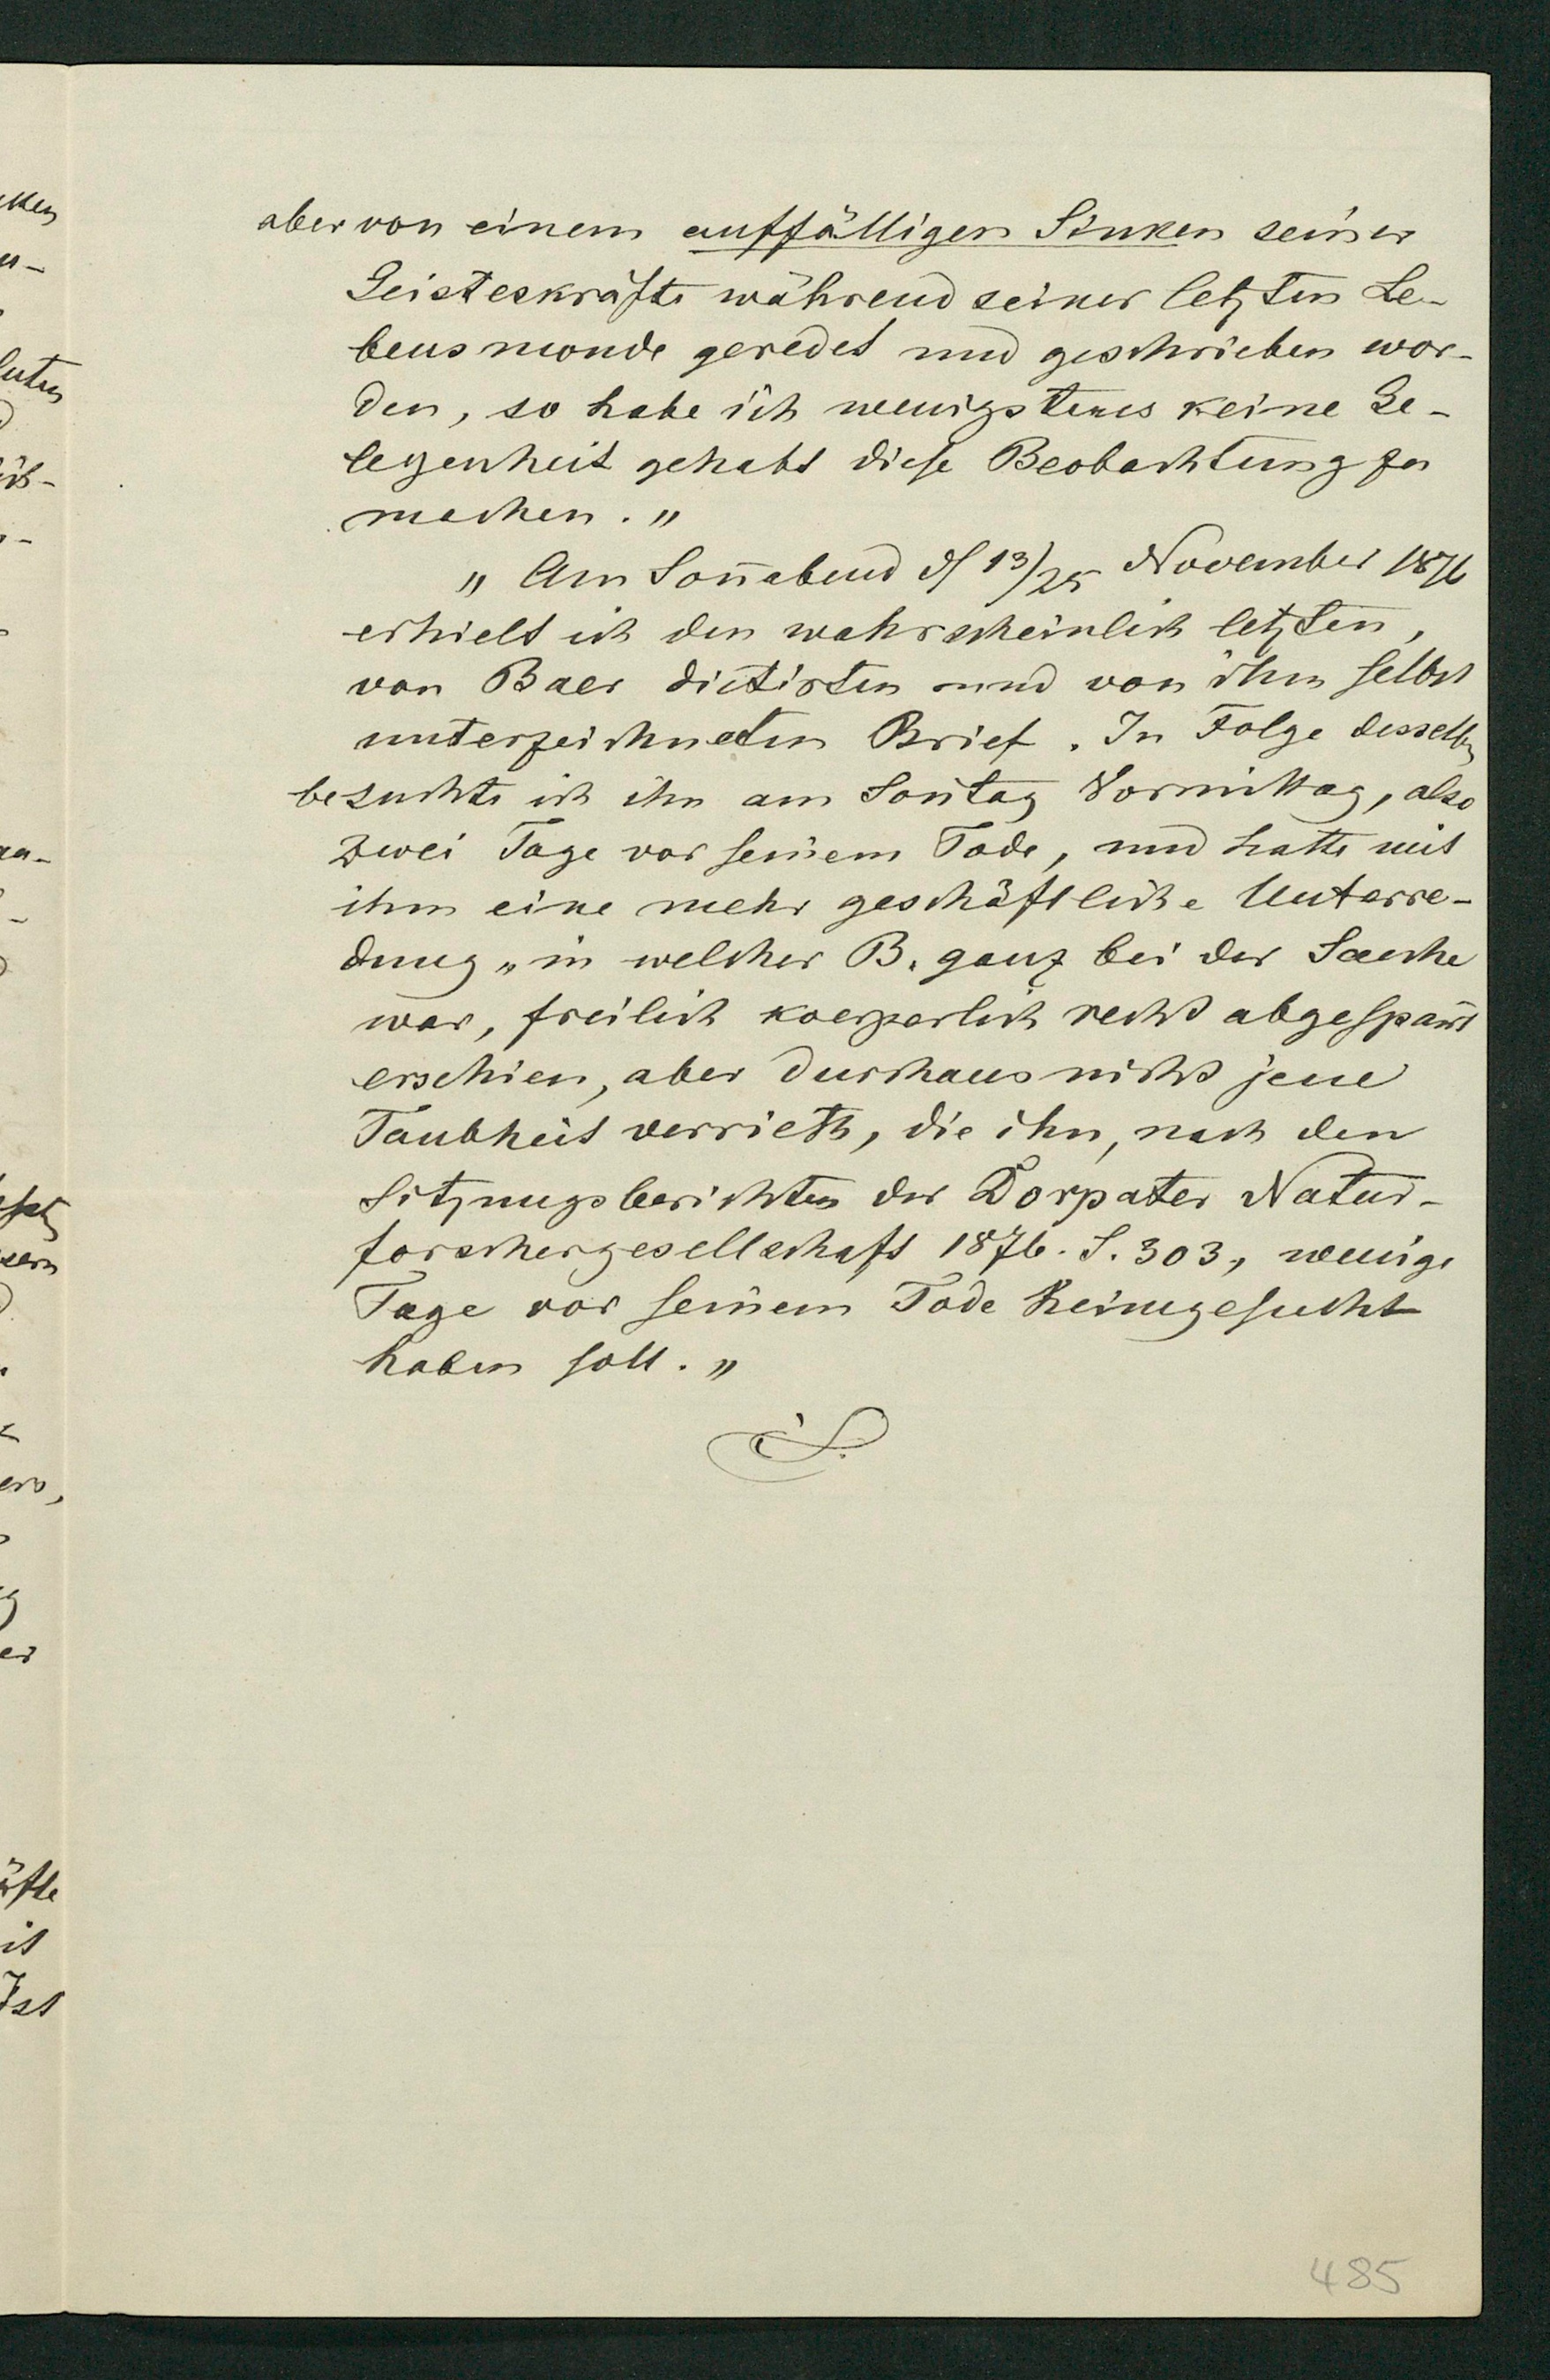 aber von einem auffälligen Sinken seiner
Geisteskräfte während seiner letzten Le-
bensmonde geredet und geschrieben wor-
den, so habe ich wenigstens keine Ge-
legenheit gehabt diese Beobachtung zu
machen."
"Am Son̄abend d/ 13/25 November 1876
erhielt ich den wahrscheinlich letzten,
von Baer dictirten und von ihm selbst
unterzeichneten Brief. In Folge desselben
besuchte ich ihn am Son̄tag Vormittag, also
zwei Tage vor seinem Tode, und hatte mit
ihm eine mehr geschäftliche Unterre-
dung „in welcher B. ganz bei der Sache
war, freilich koerperlich recht abgespan̄t
erschien, aber durchaus nicht jene
Taubheit verrieth, die ihn, nach den
Sitzungsberichten der Dorpater Natur-
forschergesellschaft 1876. S. 303, wenige
Tage vor seinem Tode heimgesucht
haben soll."
485